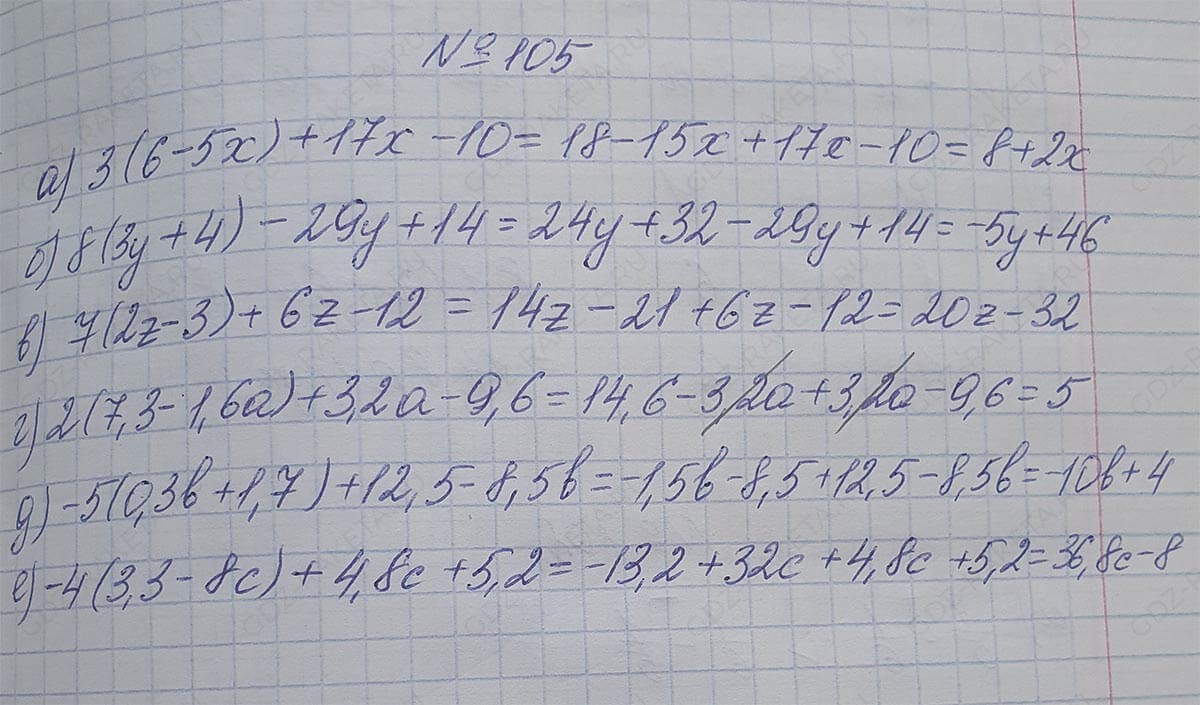 № 105
а) 3(6-5x)+17x-10=18-15x+17x-10=8+2x
б) 8(3y+4)-29y+14=24y+32-29y+14=-5y+46
в) 7(2z-3)+6z-12=14z-21+6z-12=20z-32
г) 2(7,3-1,6a)+3,2a-9,6=14,6-3,2a+3,2a-9,6=5
д) -5(0,3b+1,7)+12,5-8,5b=-1,5b-8,5+12,5-8,5b=-10b+4
е) -4(3,3-8c)+4,8c+5,2=-13,2+32c+4,8c+5,2=36,8c-8